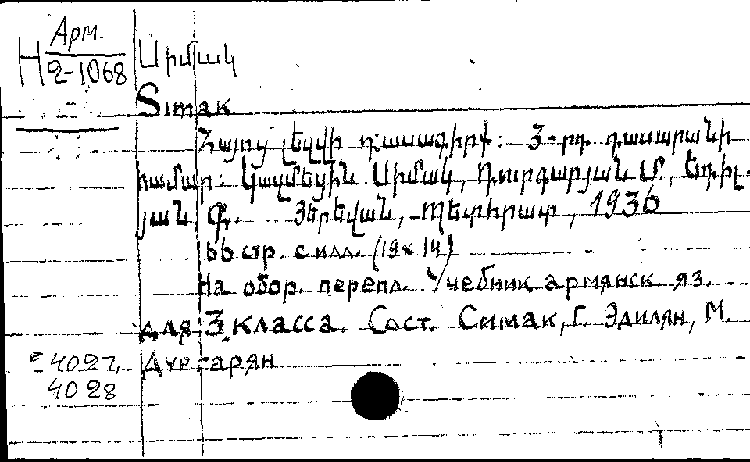 Арм.
Н 2-1068
Սիմակ
Simak
Հայոց լեզվի դասագիրք: 3-րդ դասարանի
համար: Կազմեցին Սիմակ, Դուրգարյան Մ., Եդիլ-
յան Գ. Յերեվան, Պետհրատ, 1936
66 стр. с илл. (19х14)
На обор. перепл. Учебник армянск яз.
для 3 класса. Сост. Симак, Г. Эдилян, М.
Дургарян
4027,
4028